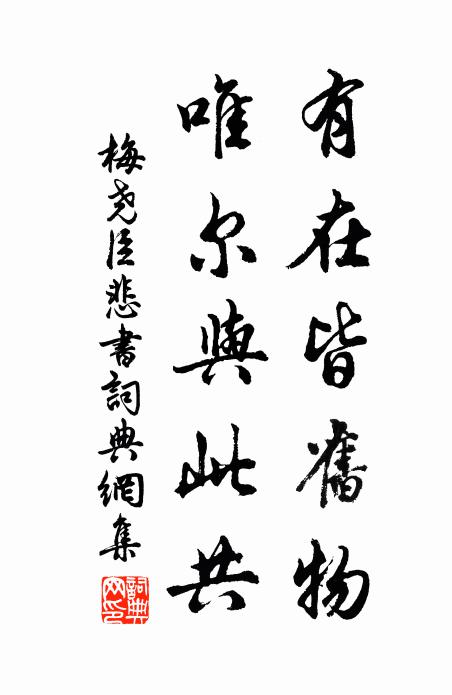 有在皆舊物
唯尔與此共
梅尧臣悲書詞典網集
詞典網印